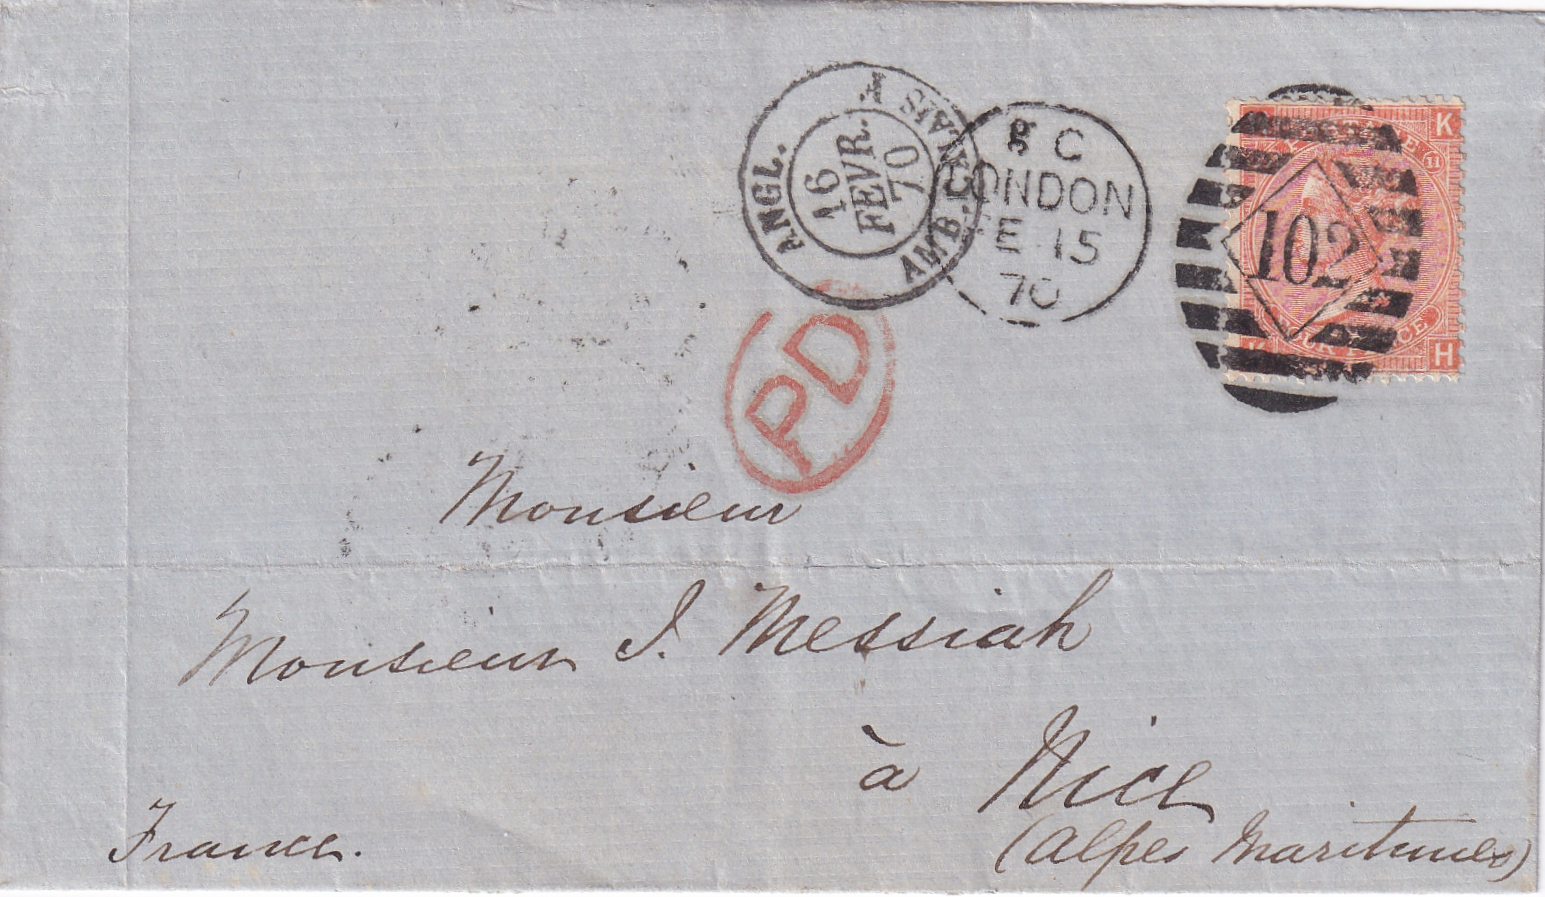 ANGL. AMB. CALAIS A
16
FEVR.
70
g C
LONDON
FE 15
70
102
K
11
FOUR PENCE
H
PD
Monsieur
Monsieur J. Messiah
à Nice
(Alpes Maritimes)
France.